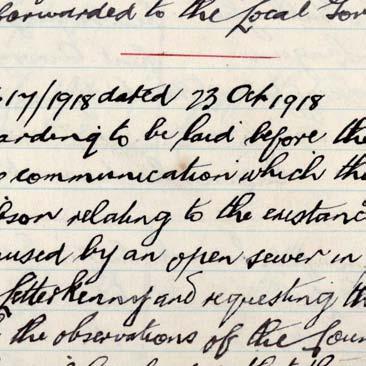 forwarded to the Local Gov
17/1918 dated 23 Oct 1918
arding to be laid before the
communication which the
son relating to the existanc
aused by an open sewer in
Letterkenny and requesting th
the observations of the Coun